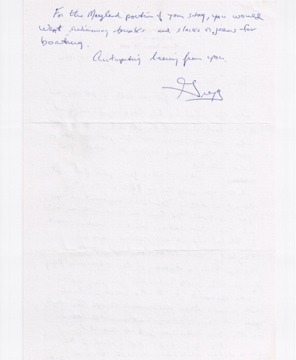 For the Maryland portion of your stay, you would
want swimming trunks and slacks or jeans for
boating.
Anticipating hearing from you.